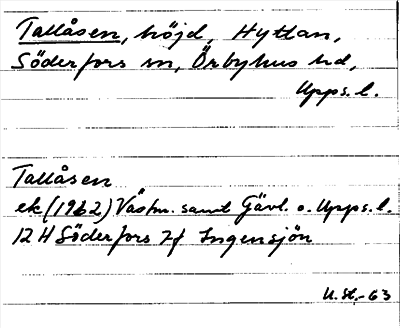 Tallåsen, höjd, Hyttan,
Söderfors sn, Örbyhus hd,
Upps. l.
Tallåsen
ek (1962) Västm. samt Gävl. o. Upps. l.
12 H Söderfors 7f Ingensjön
U. St. -63